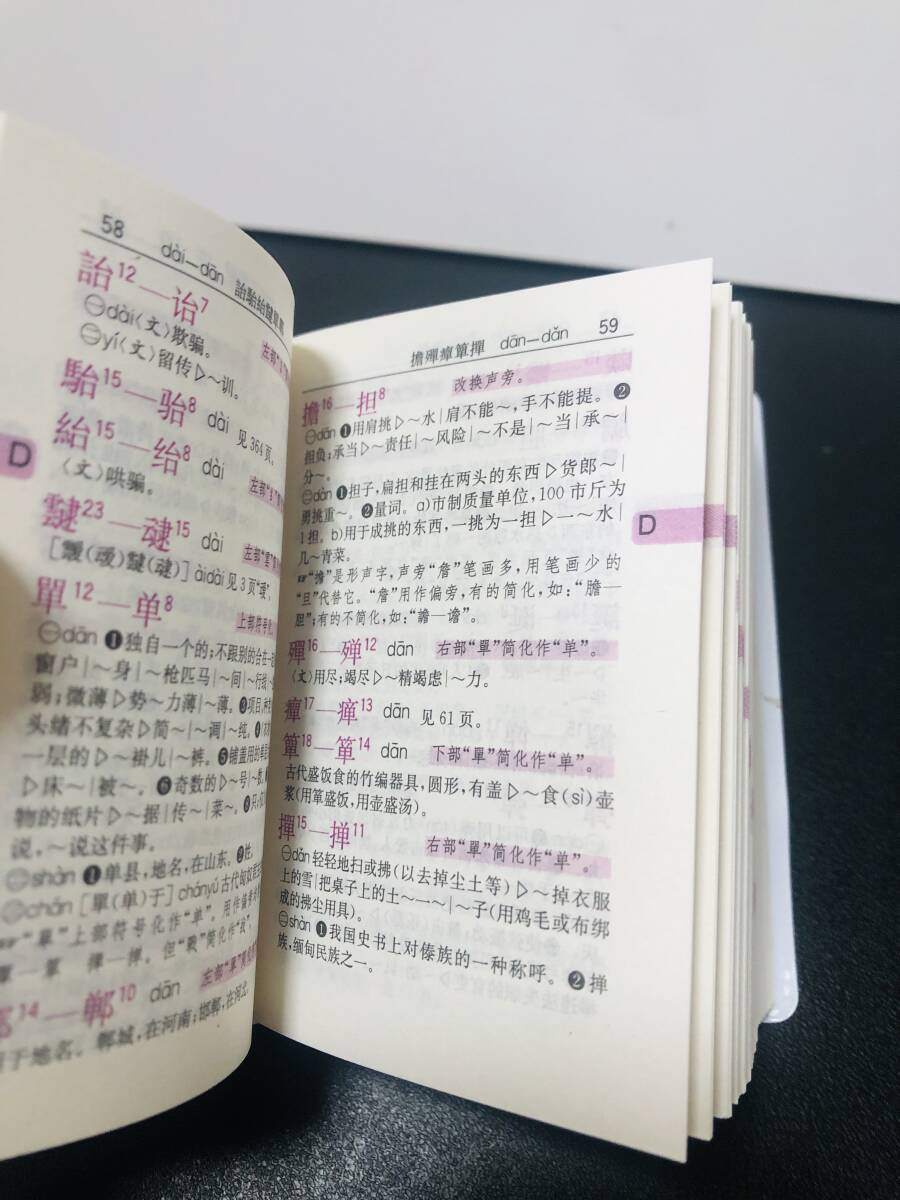 58 dài—dān 詒駘紿靆單鄲
詒12—诒7
㊀dài〈文〉欺骗。
㊁yí〈文〉留传▷～训。
駘15—骀8 dài 见364页。
紿15—绐8 dài
〈文〉哄骗。
靆23—叇15 dài
[靉(叆)靆(叇)] àidài 见3页“靉”。
單12—单8 上部符号化
㊀dān ❶独自一个的;不跟别的合在一起
窗户|～身|～枪匹马|～间|～行线
弱;微薄▷势～力薄|～薄。❸项目,种
头绪不复杂▷简～|～调|～纯。
一层的▷～褂儿|～裤。❺铺盖用的单层
▷床～|被～。❻奇数的▷～号|～数
物的纸片▷～据|传～|菜～。
说,～说这件事。
㊁shàn ❶单县,地名,在山东。❷姓。
㊂chán [單(单)于] chányú 古代匈奴君主
☞“單”上部符号化作“单”。用作偏旁
簞—箪 但“戰”简化作“战”。
鄲14—郸10 dān
用于地名。郸城,在河南;邯郸,在河北。
D
擔殫癉簞撣 dān—dǎn 59
擔16—担8 改换声旁。
㊀dān ❶用肩挑▷～水|肩不能～,手不能提。❷
担负;承当▷～责任|～风险|～不是|～当|承～|
分～。
㊁dàn ❶担子,扁担和挂在两头的东西▷货郎～|
勇挑重～。❷量词。a)市制质量单位,100 市斤为
1 担。b)用于成挑的东西,一挑为一担▷一～水|
几～青菜。
☞“擔”是形声字,声旁“詹”笔画多,用笔画少的
“旦”代替它。“詹”用作偏旁,有的简化,如:“膽—
胆”;有的不简化,如:“譫—谵”。
殫16—殚12 dān 右部“單”简化作“单”。
〈文〉用尽;竭尽▷～精竭虑|～力。
癉17—瘅13 dān 见61页。
簞18—箪14 dān 下部“單”简化作“单”。
古代盛饭食的竹编器具,圆形,有盖▷～食(sì)壶
浆(用箪盛饭,用壶盛汤)。
撣15—掸11 右部“單”简化作“单”。
㊀dǎn 轻轻地扫或拂(以去掉尘土等)▷～掉衣服
上的雪|把桌子上的土～一～|～子(用鸡毛或布绑
成的拂尘用具)。
㊁shàn ❶我国史书上对傣族的一种称呼。❷掸
族,缅甸民族之一。
D